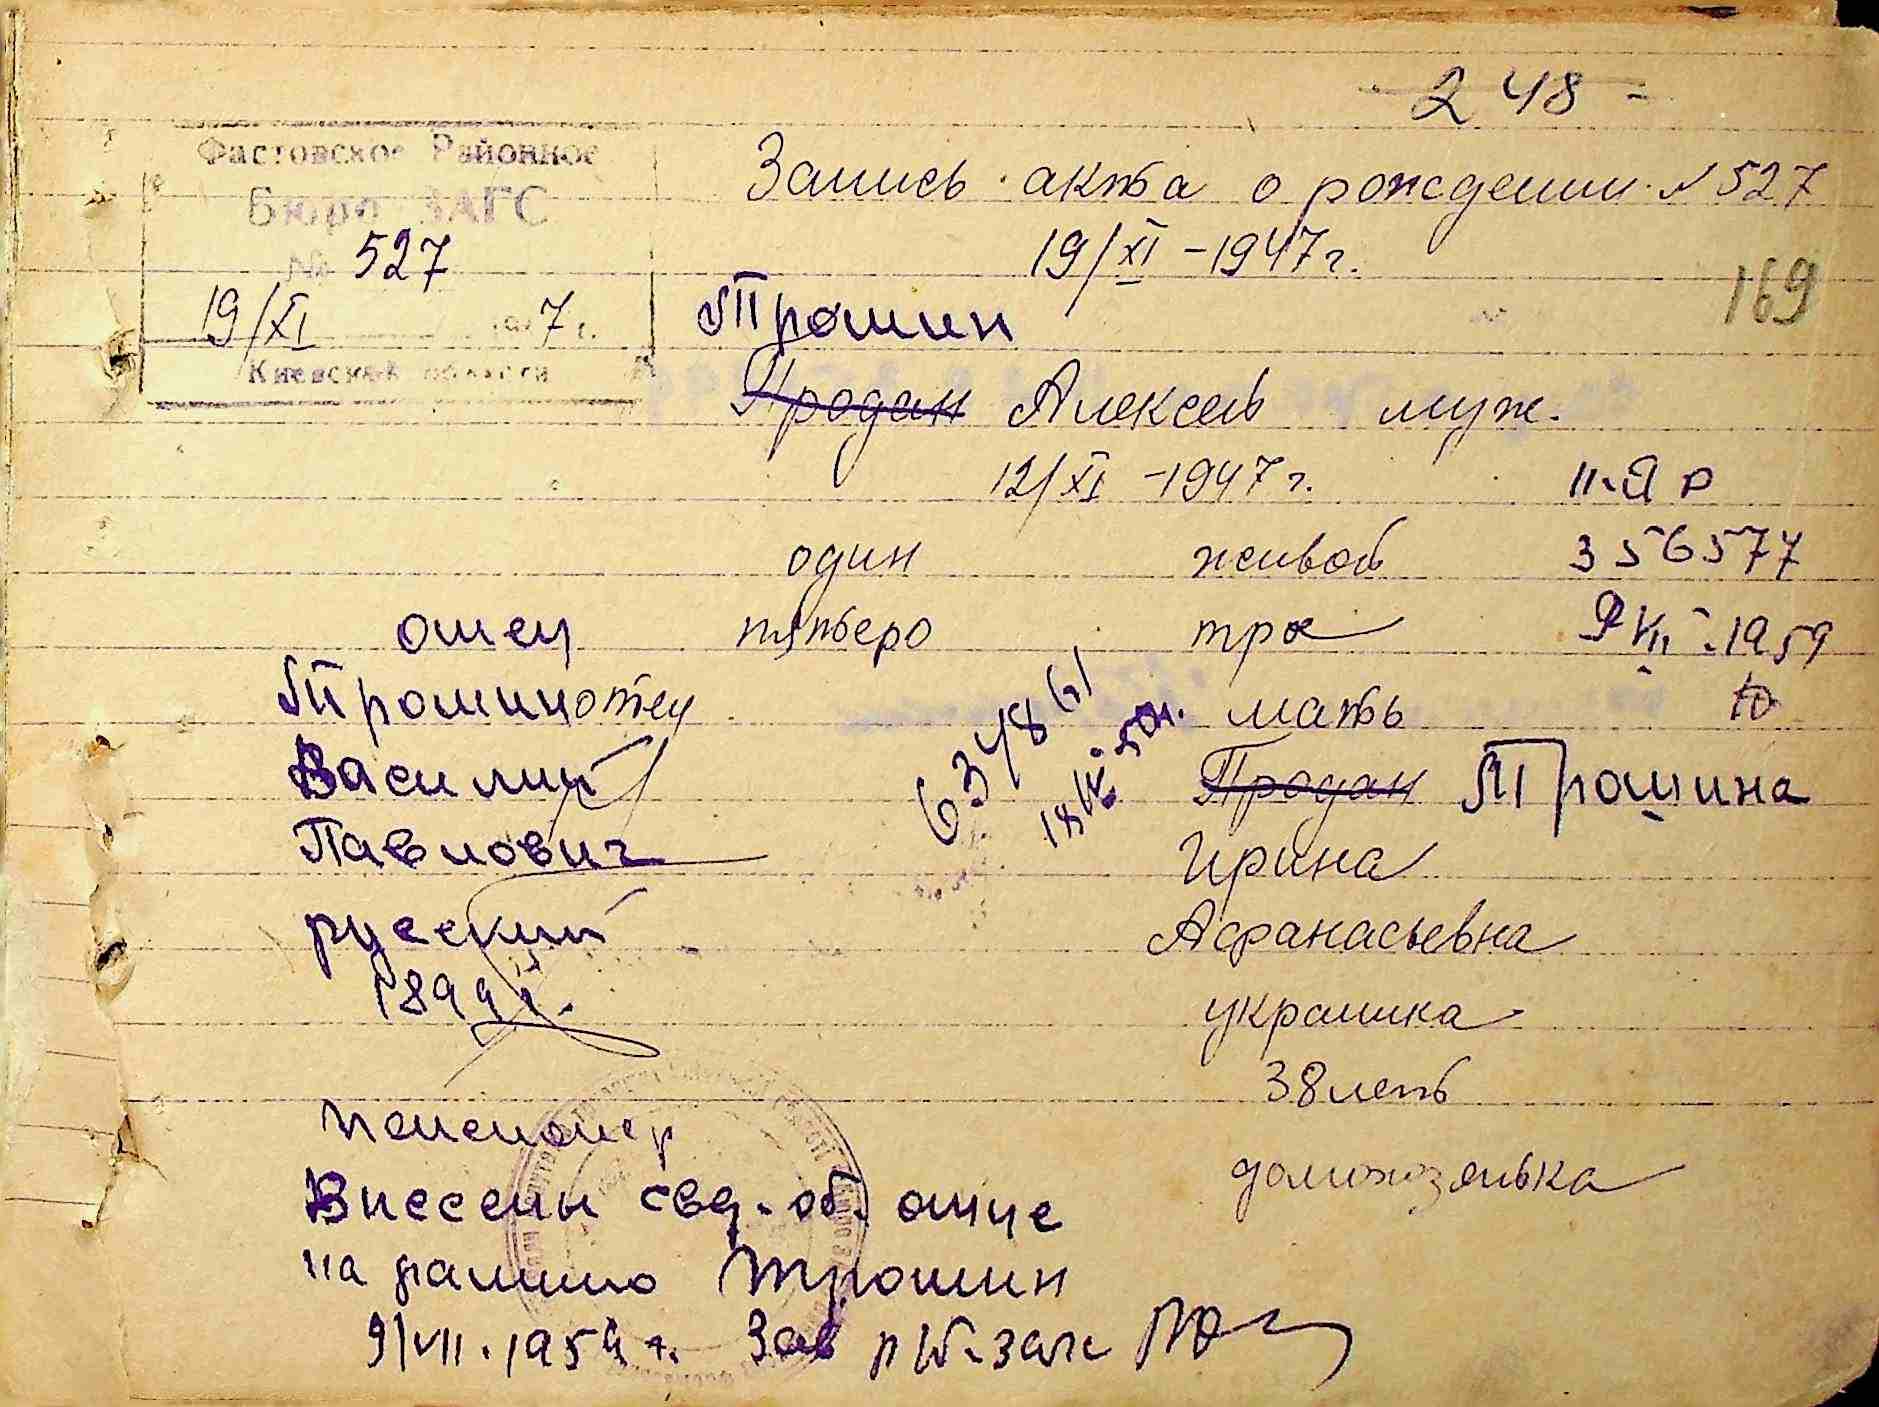 248 -
Фастовское Районное
Бюро ЗАГС
№ 527
19/XI 7 г.
Киевской области
Запись акта о рождении № 527
19/XI - 1947 г.
169
Трошин
Продан Алексей муж.
12/XI - 1947 г.
II-ЯР
один живой 356577
отец пятеро трое 9 VII - 1959
Трошин отец мать
634861
Василий Продан Трошина
Павлович Ирина
русский Афанасьевна
1899 г. украинка
38 леть
пенсионер
домохозяйка
Внесены свед. об. отце
на фамилию Трошин
9/VII. 1959 г. Зав загс